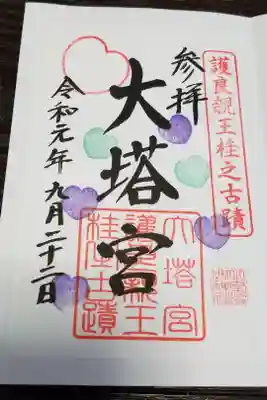 護良親王柱之古蹟
参拝
大塔宮
令和元年九月二十二日
大塔宮
護良親王
柱之古蹟